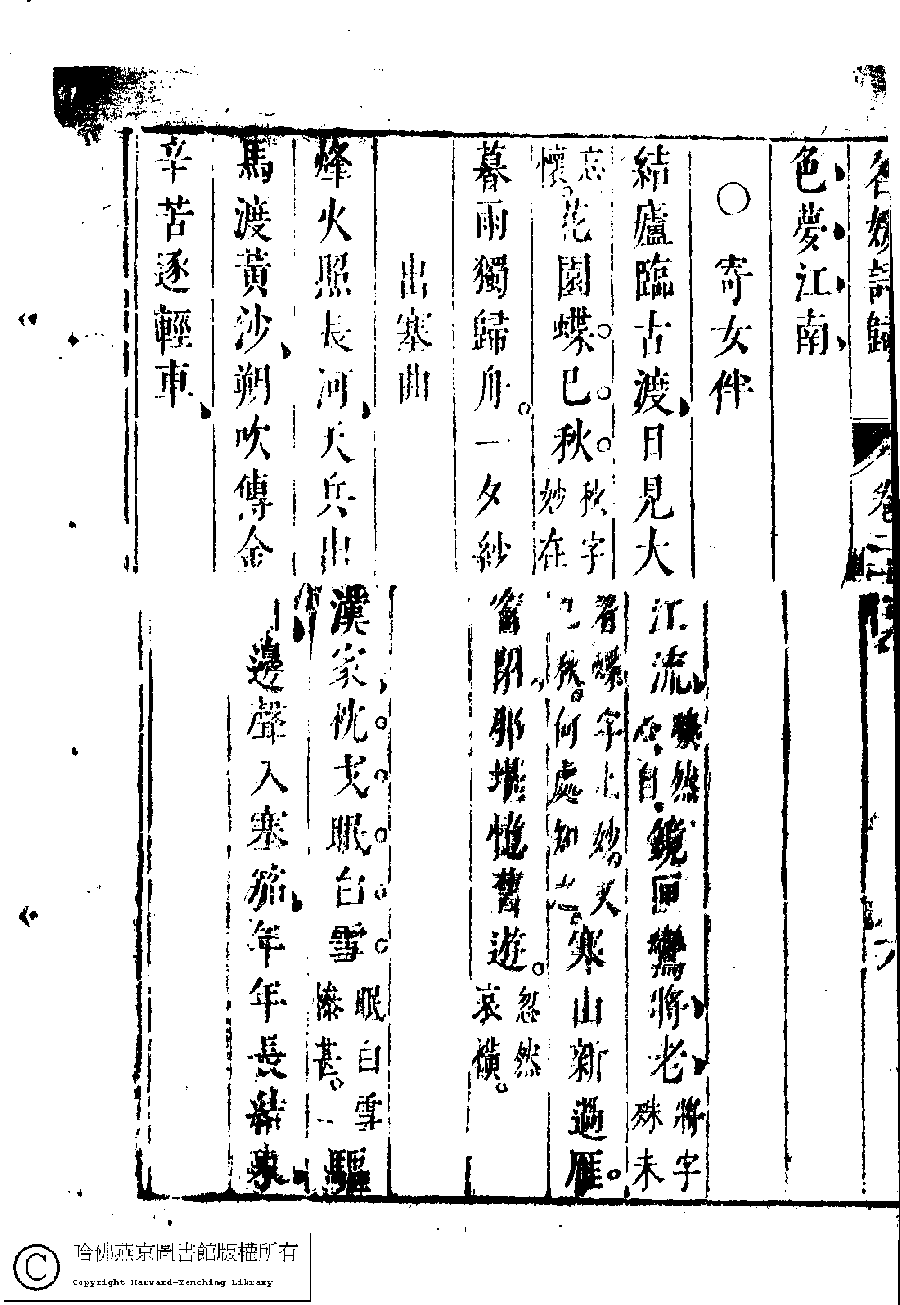 名媛詩歸 卷二十 六
色夢江南
○寄女伴
結廬臨古渡日見大江流驟然虛自鏡匣鸞將老將字殊未
忘懷花園蝶已秋秋字妙在着蝶字上妙又已秋何處知之寒山新過雁
暮雨獨歸舟一夕紗窗閉那堪憶舊遊忽然哀橫
出塞曲
烽火照長河天兵出漢家枕戈眠白雪眠白雪慘甚一驅
馬渡黃沙朔吹傳金 邊聲入塞笳年年長結束
辛苦逐輕車
哈佛燕京圖書館版權所有
Copyright Harvard-Yenching Library